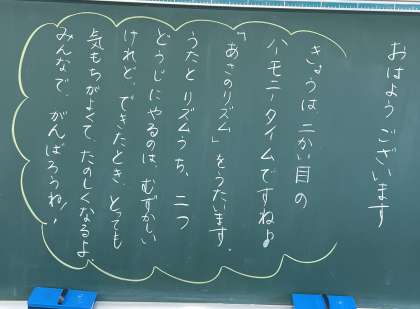 おはようございます
きょうは、二かい目の
ハーモニータイムですね♪
「あさのリズム」をうたいます。
うたとリズムうち、二つ
どうじにやるのは、むずかしい
けれど、できたとき、とっても
気もちがよくて、たのしくなるよ
みんなで、がんばろうね!